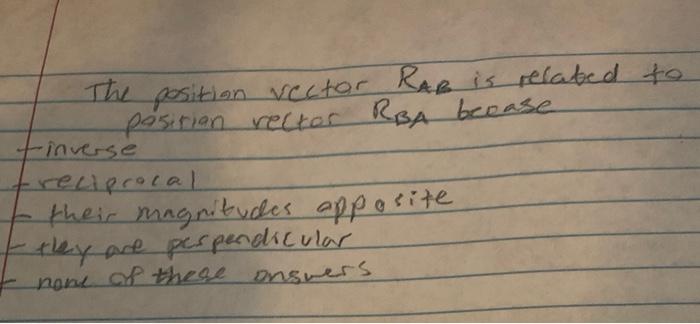 The position vector RAB is related to
position vector RBA becase
- inverse
- reciprocal
- their magnitudes apposite
- they are perpendicular
- none of these answers